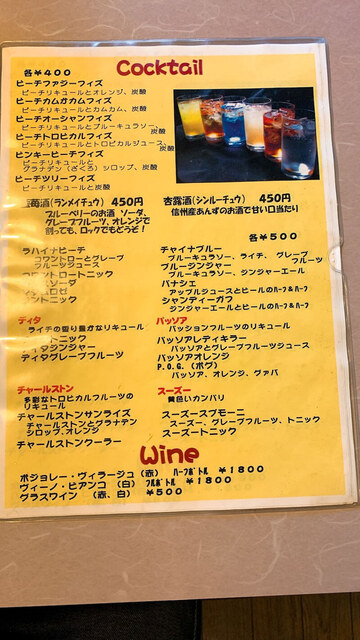 Cocktail
各￥400
ピーチファジーフィズ
ピーチリキュールとオレンジ、炭酸
ピーチカムカムフィズ
ピーチリキュールとカムカム、炭酸
ピーチオーシャンフィズ
ピーチリキュールとブルーキュラソー、炭酸
ピーチトロピカルフィズ
ピーチリキュールとトロピカルジュース、炭酸
ピンキーピーチフィズ
ピーチリキュールと
グラナデン（ざくろ）シロップ、炭酸
ピーチツリーフィズ
ピーチリキュールと炭酸
苺酒(ランメイチュウ) 450円
ブルーベリーのお酒 ソーダ、
グレープフルーツ、オレンジで
割っても、ロックでもどうぞ！
杏露酒(シンルーチュウ) 450円
信州産あんずのお酒で甘い口当たり
各￥500
ラハイナピーチ
コワントローとグレープ
フルーツジュース
コワントロートニック
ディタ
ライチの香り豊かなリキュール
ディタグレープフルーツ
チャールストン
多彩なトロピカルフルーツの
リキュール
チャールストンサンライズ
チャールストンとグラナデン
シロップ、オレンジ
チャールストンクーラー
チャイナブルー
ブルーキュラソー、ライチ、グレープフルーツ
ブルージンジャー
ブルーキュラソー、ジンジャーエール
パナシェ
アップルジュースとビールのハーフ＆ハーフ
シャンディーガフ
ジンジャーエールとビールのハーフ＆ハーフ
パッソア
パッションフルーツのリキュール
パッソアレディキラー
パッソアとグレープフルーツジュース
パッソアオレンジ
P.O.G.（ポグ）
パッソア、オレンジ、グァバ
スーズー
黄色いカンパリ
スーズースプモーニ
スーズー、グレープフルーツ、トニック
スーズートニック
Wine
ボジョレー・ヴィラージュ（赤） ハーフボトル ￥1800
ヴィーノ・ビアンコ （白） フルボトル ￥1800
グラスワイン （赤、白） ￥500